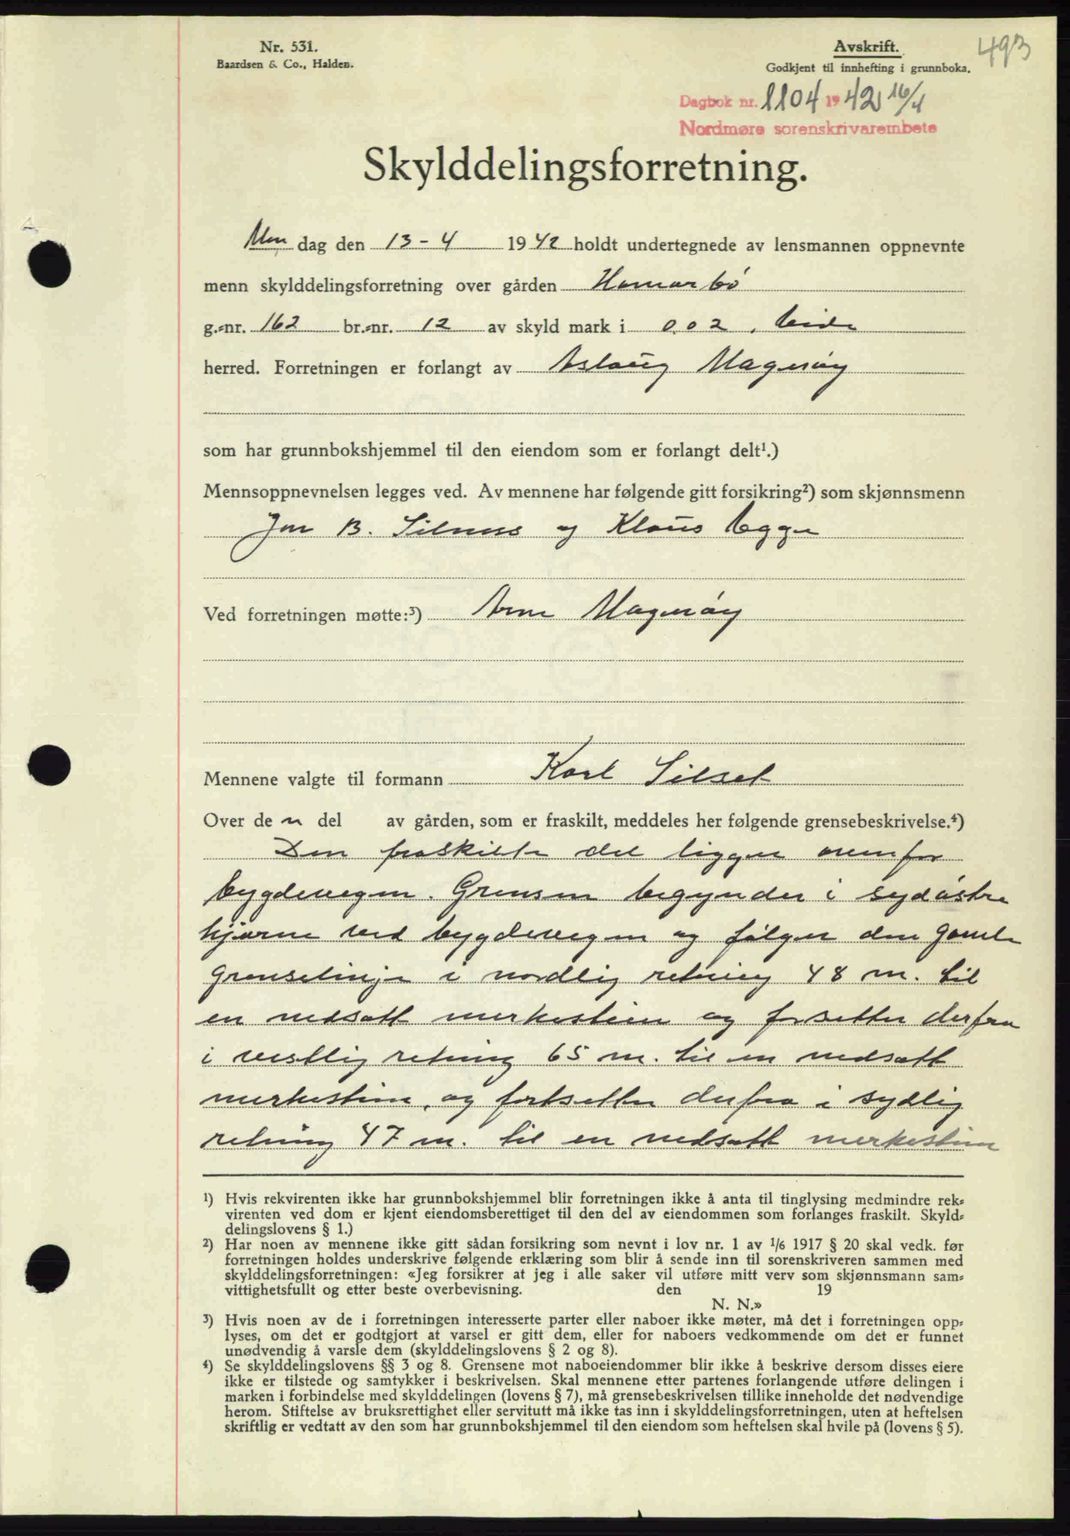 Nr. 531.
Baardsen & Co., Halden.
Avskrift.
Godkjent til innhefting i grunnboka.
493
Dagbok nr. 1104 1942 16/4
Nordmøre sorenskrivarembete
Skylddelingsforretning.
Mandag den 13-4 1942 holdt undertegnede av lensmannen oppnevnte
menn skylddelingsforretning over gården Hamarbö
g.-nr. 162 br.-nr. 12 av skyld mark i 0.02,
herred. Forretningen er forlangt av Aslaug Magerøy
som har grunnbokshjemmel til den eiendom som er forlangt delt¹.)
Mennsoppnevnelsen legges ved. Av mennene har følgende gitt forsikring²) som skjønnsmenn
B. Silnes og Klaus Egge
Ved forretningen møtte:³) Arne Magerøy
Mennene valgte til formann Karl Silset
Over den del av gården, som er fraskilt, meddeles her følgende grensebeskrivelse.⁴)
Den fraskilte del ligger ovenfor
bygdevegen. Grensen begynder i sydöstre
hjørne ved bygdevegen og fölger den gamle
grenselinje i nordlig retning 48 m. til
en nedsatt merkestein og forsetter derfra
i vestlig retning 65 m. til en nedsatt
merkestein, og fortsetter derfra i sydlig
retning 47 m. til en nedsatt merkestein
¹) Hvis rekvirenten ikke har grunnbokshjemmel blir forretningen ikke å anta til tinglysing medmindre rek-
virenten ved dom er kjent eiendomsberettiget til den del av eiendommen som forlanges fraskilt. Skyld-
delingslovens § 1.)
²) Har noen av mennene ikke gitt sådan forsikring som nevnt i lov nr. 1 av 1/6 1917 § 20 skal vedk. før
forretningen holdes underskrive følgende erklæring som blir å sende inn til sorenskriveren sammen med
skylddelingsforretningen: «Jeg forsikrer at jeg i alle saker vil utføre mitt verv som skjønnsmann sam-
vittighetsfullt og etter beste overbevisning. den 19
N. N.»
³) Hvis noen av de i forretningen interesserte parter eller naboer ikke møter, må det i forretningen opp-
lyses, om det er godtgjort at varsel er gitt dem, eller for naboers vedkommende om det er funnet
unødvendig å varsle dem (skylddelingslovens § 2 og 8).
⁴) Se skylddelingslovens §§ 3 og 8. Grensene mot naboeiendommer blir ikke å beskrive dersom disses eiere
ikke er tilstede og samtykker i beskrivelsen. Skal mennene etter partenes forlangende utføre delingen i
marken i forbindelse med skylddelingen (lovens § 7), må grensebeskrivelsen tillike inneholde det nødvendige
herom. Stiftelse av bruksrettighet eller servitutt må ikke tas inn i skylddelingsforretningen, uten at heftelsen
skriftlig er vedtatt av den som har grunnbokshjemmel til den eiendom som heftelsen skal hvile på (lovens § 5).